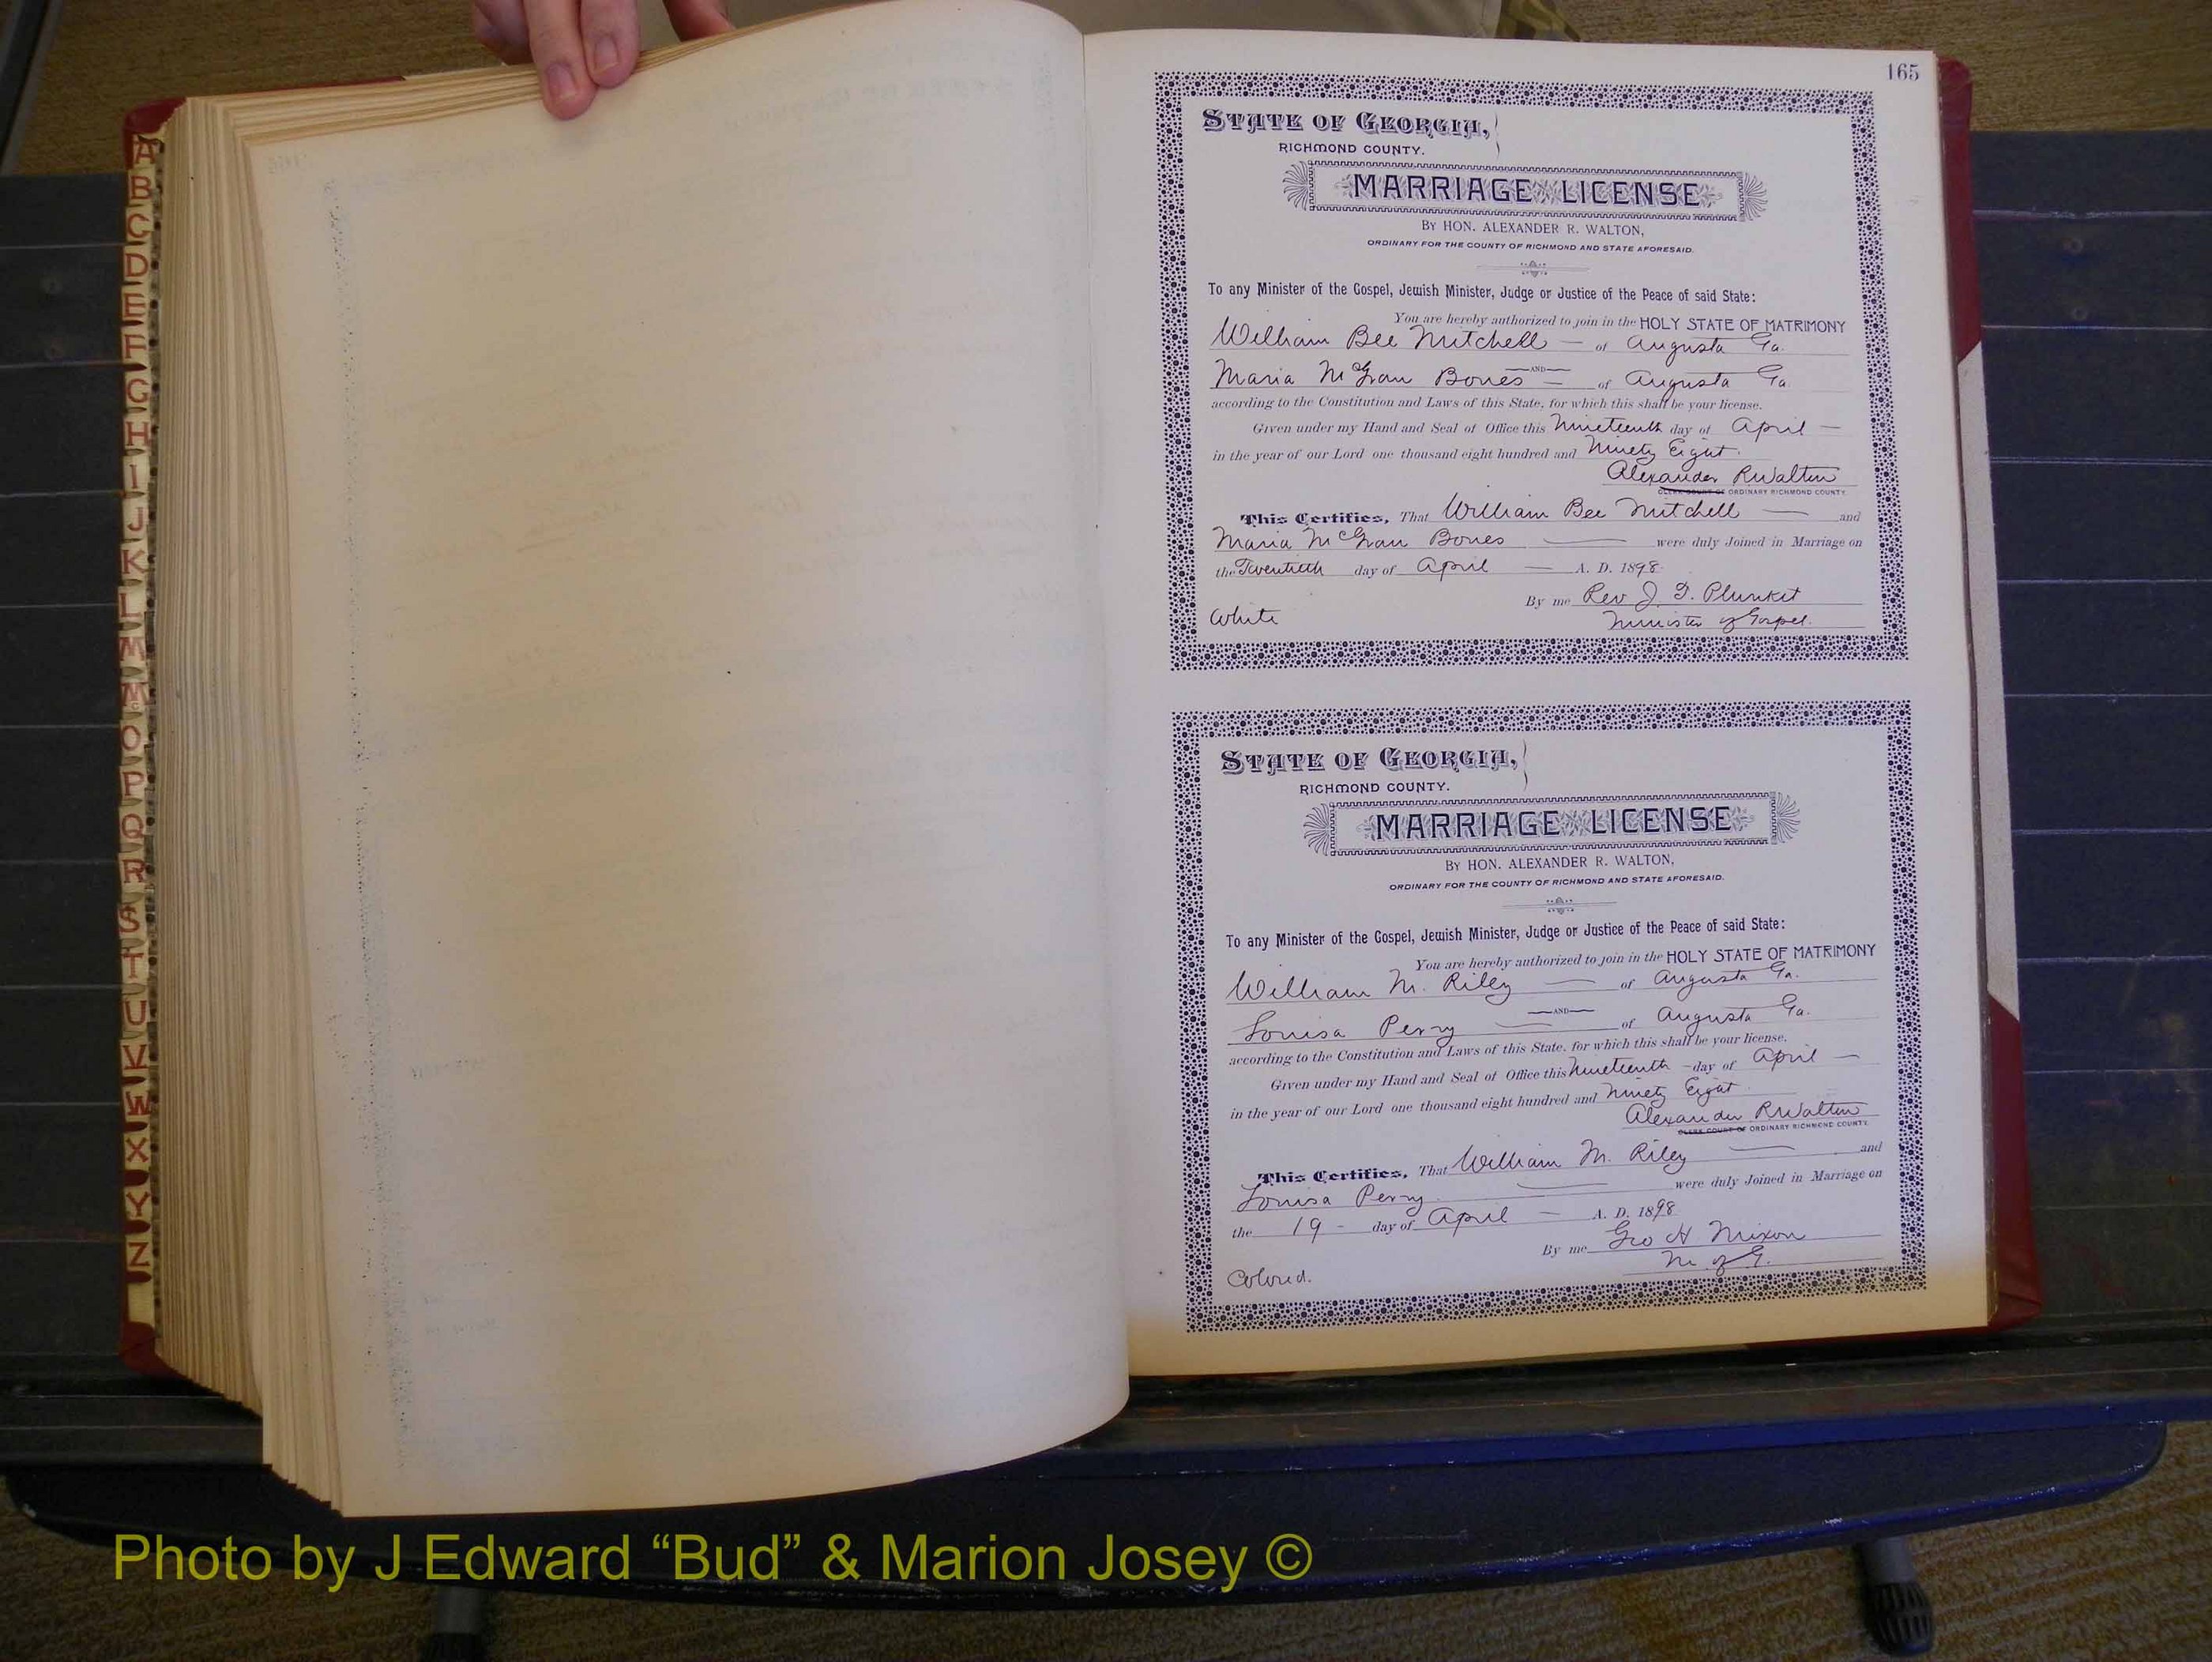 165
A
B
C
D
E
F
G
H
I
J
K
L
M
Mc
O
P
Q
R
S
T
U
V
W
X
Y
Z
STATE OF GEORGIA,
RICHMOND COUNTY.
MARRIAGE LICENSE
BY HON. ALEXANDER R. WALTON,
ORDINARY FOR THE COUNTY OF RICHMOND AND STATE AFORESAID.
To any Minister of the Gospel, Jewish Minister, Judge or Justice of the Peace of said State:
You are hereby authorized to join in the HOLY STATE OF MATRIMONY
William Bee Mitchell — of Augusta Ga.
—AND—
Maria McGran Bones — of Augusta Ga
according to the Constitution and Laws of this State, for which this shall be your license.
Given under my Hand and Seal of Office this Nineteenth day of April —
in the year of our Lord one thousand eight hundred and Ninety Eight.
Alexander R Walton
CLERK COURT OF ORDINARY RICHMOND COUNTY
This Certifies, That William Bee Mitchell — and
Maria McGran Bones — were duly Joined in Marriage on
the Twentieth day of April — A. D. 1898
By me Rev J. T. Plunket
White Minister of Gospel.
STATE OF GEORGIA,
RICHMOND COUNTY.
MARRIAGE LICENSE
BY HON. ALEXANDER R. WALTON,
ORDINARY FOR THE COUNTY OF RICHMOND AND STATE AFORESAID.
To any Minister of the Gospel, Jewish Minister, Judge or Justice of the Peace of said State:
You are hereby authorized to join in the HOLY STATE OF MATRIMONY
William M. Riley — of Augusta Ga.
—AND—
Louisa Perry — of Augusta Ga.
according to the Constitution and Laws of this State, for which this shall be your license.
Given under my Hand and Seal of Office this Nineteenth - day of April —
in the year of our Lord one thousand eight hundred and Ninety Eight
Alexander R Walton
CLERK COURT OF ORDINARY RICHMOND COUNTY.
This Certifies, That William M. Riley — and
Louisa Perry — were duly Joined in Marriage on
the 19 - day of April — A. D. 1898
By me Geo H Nixon
M. of G.
Colored.
Photo by J Edward “Bud” & Marion Josey ©